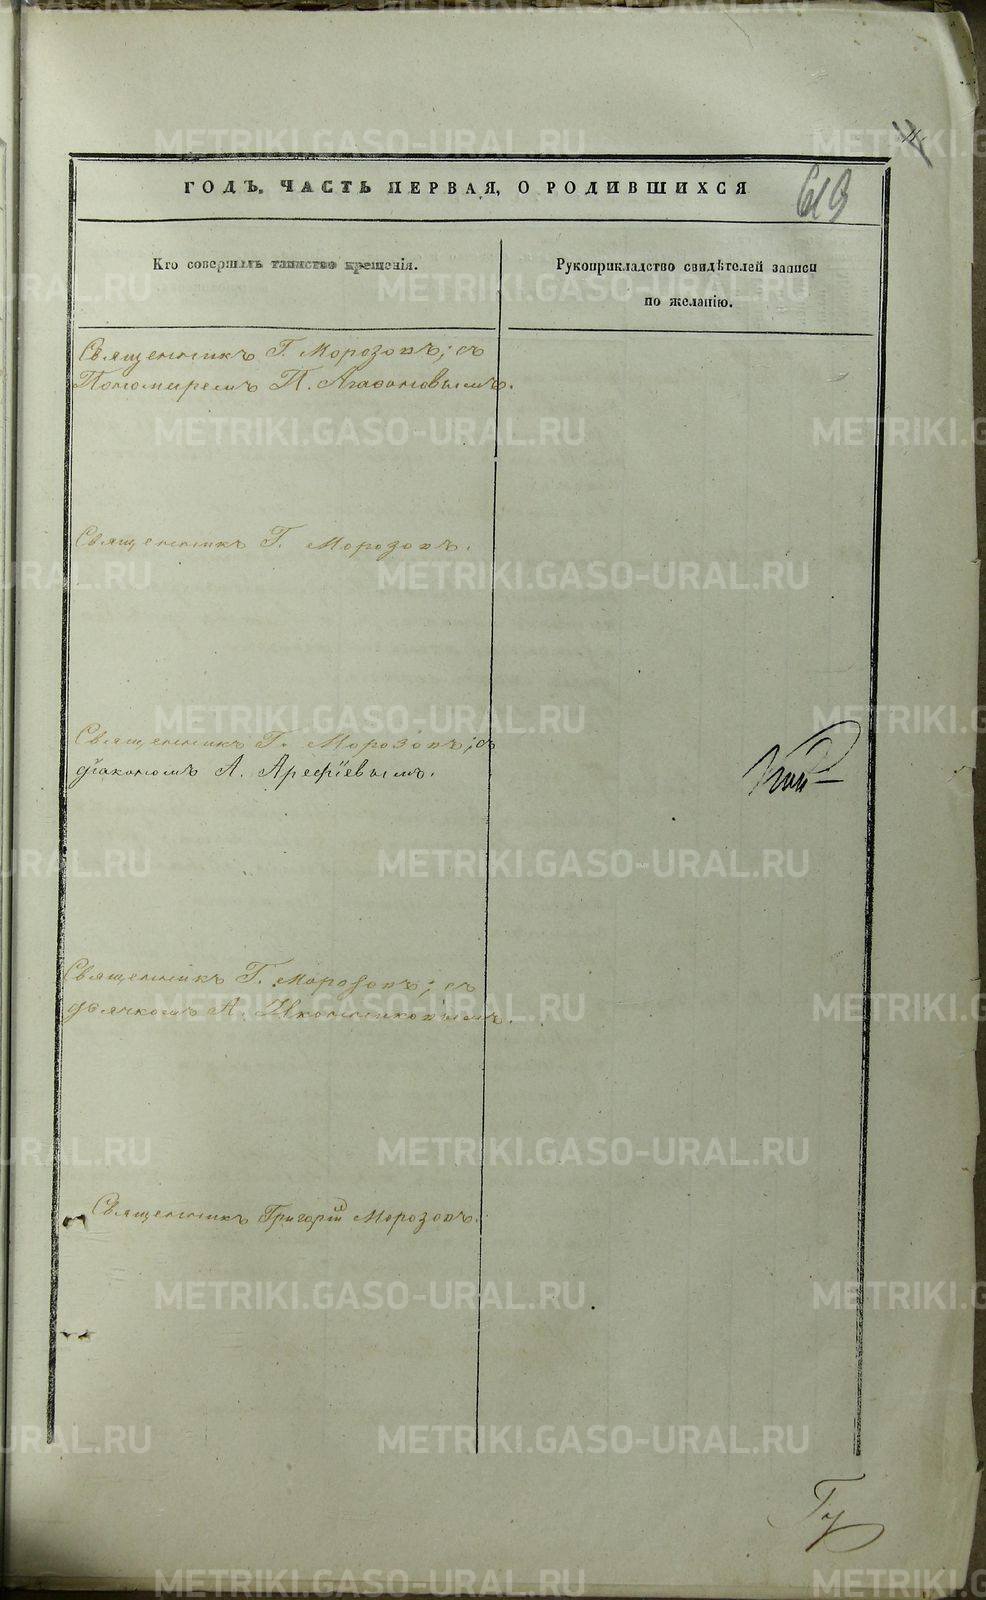 ГОДЪ. ЧАСТЬ ПЕРВАЯ, О РОДИВШИХСЯ
619
Кто совершалъ таинство крещенія.
Рукоприкладство свидѣтелей записи
по желанію.
Священникъ Г. Морозовъ; съ
Пономаремъ П. Агафоновымъ.
Священникъ Г. Морозовъ.
Священникъ Г. Морозовъ; съ
діакономъ А. Арефіевымъ.
Священникъ Г. Морозовъ; съ
дьячкомъ А. Иконниковымъ.
Священникъ Григорій Морозовъ.
METRIKI.GASO-URAL.RU